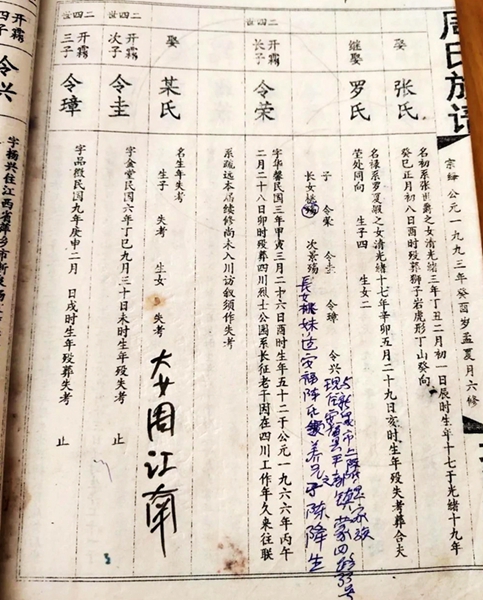 周氏族谱
宗绛 公元一九九三年癸酉岁孟夏月六修
娶 张氏
名初系张世爵之女清光绪三年丁丑二月初一日辰时生年十七于光绪十九年
癸巳正月初八日酉时殁葬狮子岩虎形丁山癸向
继娶 罗氏
名禄系罗夏嘏之女清光绪十七年辛卯五月二十九日亥时生年殁失考葬合夫
茔处同向 生子四 生女二
子 令荣 令圭 令璋 令兴
长女 次景瑞
二四世 开霭长子 令荣
字华馨民国三年甲寅三月二十六日酉时生年五十二于公元一九六六年丙午
二月二十八日卯时殁葬四川烈士公园系长征老干因在四川工作年久来往联
系疏远本届续修尚未入川访叙须作失考
娶 某氏
名生年失考
生子 失考 生女 失考
大女周江南
二四世 开霭次子 令圭
字金堂民国六年丁巳九月三十日未时生年殁失考 止
二四世 开霭三子 令璋
字品徵民国九年庚申二月 日戌时生年殁葬失考 止
开霭四子 令兴
字扬兴住江西省萍乡市新